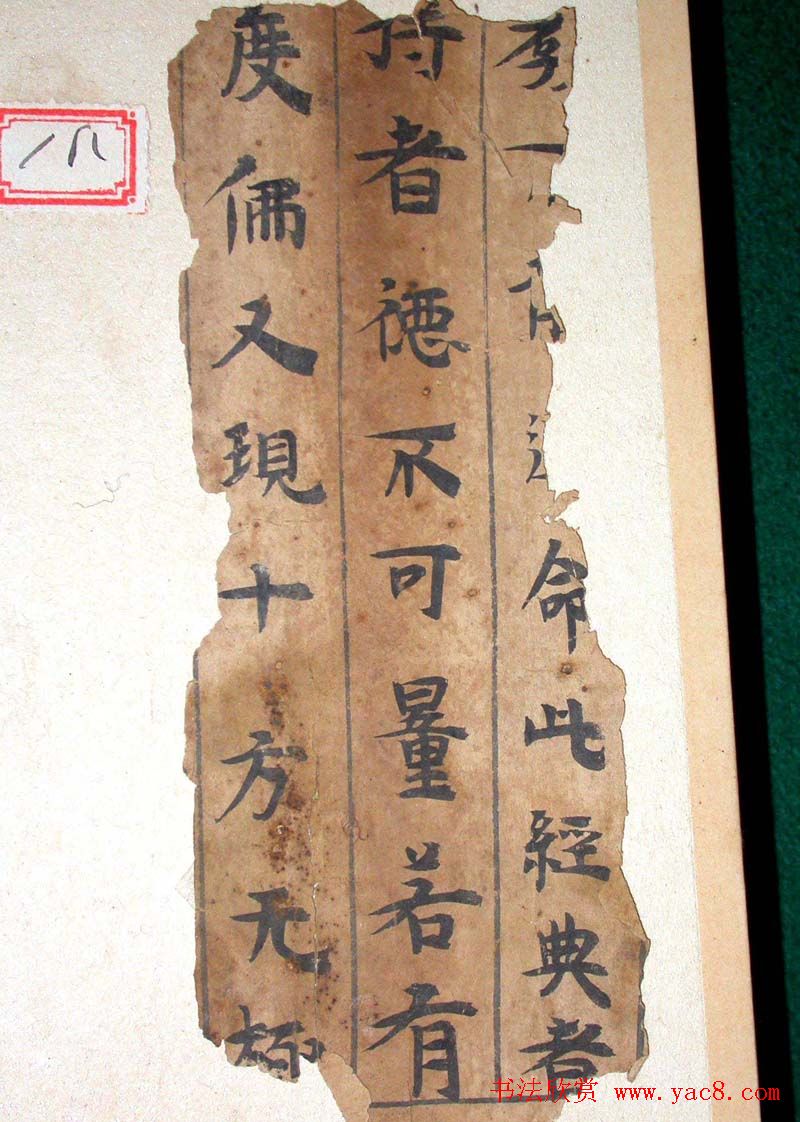 命此經典者
持者德不可量若有
度又現十方无
书法欣赏 www.yac8.com